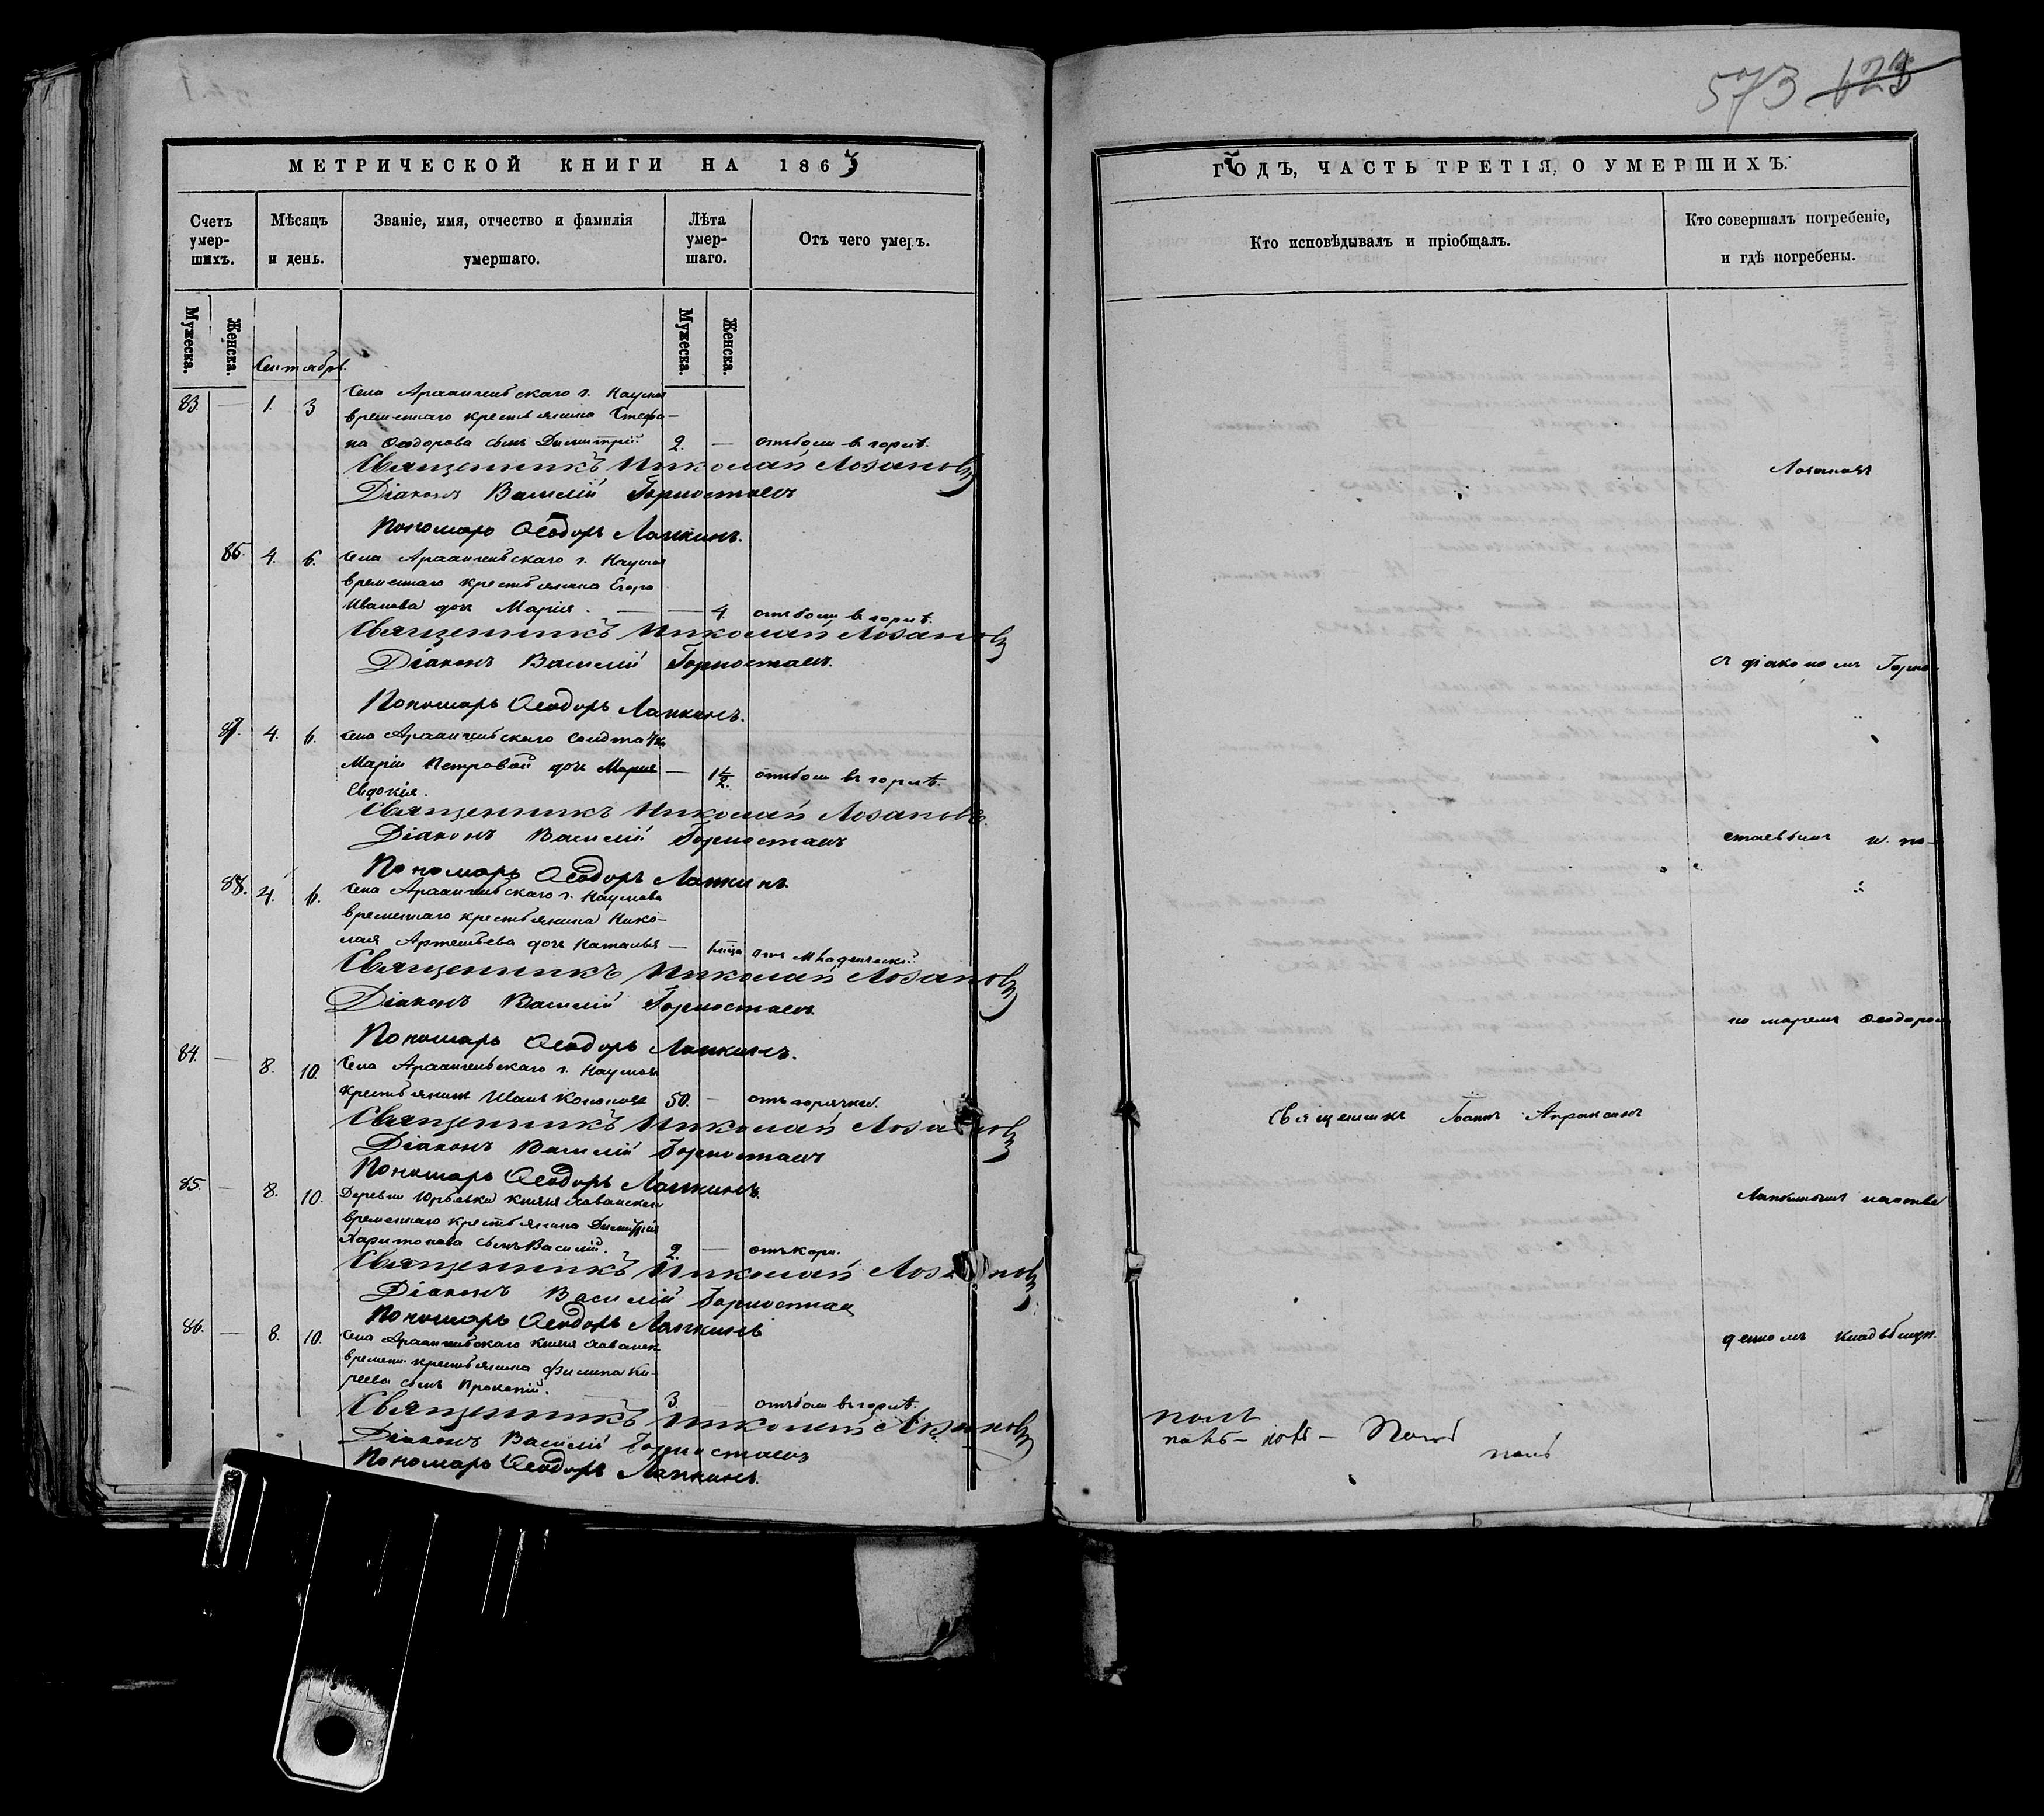 МЕТРИЧЕСКОЙ КНИГИ НА 1863
Счетъ умер-шихъ.
Мѣсяцъ и день.
Званіе, имя, отчество и фамилія умершаго.
Лѣта умер-шаго.
Отъ чего умеръ.
Мужеска.
Женска.
Мужеска.
Женска.
Сентябрь.
83. — 1. 3 Села Архангельскаго г. Наумова
временнаго крестьянина Стефа-
на Ѳеодорова сынъ Димитрій 2. — отъ боли в горлѣ.
Священникъ Николай Лозановъ
Діаконъ Василій Горностаевъ
Пономарь Ѳеодоръ Лапкинъ.
86. 4. 6. Села Архангельскаго г. Наумова
временнаго крестьянина Егора
Иванова дочь Марія. — — 4. отъ боли в горлѣ.
Священникъ Николай Лозановъ
Діаконъ Василій Горностаевъ.
Пономарь Ѳеодоръ Лапкинъ.
87. 4. 6. Села Архангельскаго солдатки
Маріи Петровой дочь Мария — 1½. отъ боли въ горлѣ.
Евдокія.
Священникъ Николай Лозановъ.
Діаконъ Василій Горностаевъ
Пономарь Ѳеодоръ Лапкинъ
88. 4. 6. Села Архангельскаго г. Наумова
временнаго крестьянина Нико-
лая Артемьева дочь Наталья —
Священникъ Николай Лозановъ
Діаконъ Василій Горностаевъ
Пономарь Ѳеодоръ Лапкинъ.
84. — 8. 10. Села Архангельскаго г. Наумова
крестьянинъ Иванъ 50. — отъ горячки.
Священникъ Николай Лозановъ
Діаконъ Василій Горностаевъ
Пономарь Ѳеодоръ Лапкинъ.
85. — 8. 10. Деревни Юрьевки князя Хованскаго
временнаго крестьянина Димитрія
Харитонова сынъ Василій. 2. — отъ кори.
Священникъ Николай Лозановъ
Діаконъ Василій Горностаевъ
Пономарь Ѳеодоръ Лапкинъ
86. — 8. 10. Села Архангельскаго князя Хованск
времен. крестьянина Филипа Ки-
реева сынъ Прокопій. 3. отъ боли въ горлѣ.
Священникъ Николай Лозановъ
Діаконъ Василій Горностаевъ
Пономарь Ѳеодоръ Лапкинъ.
573 623
ГОДЪ, ЧАСТЬ ТРЕТІЯ, О УМЕРШИХЪ.
Кто исповѣдывалъ и пріобщалъ.
Кто совершалъ погребеніе,
и гдѣ погребены.
Лозановъ
съ діакономъ Горно-
стаевымъ и по-
номаремъ Ѳеодоромъ
Священникъ Іоаннъ
Лапкинымъ на отве
денномъ кладбищѣ.